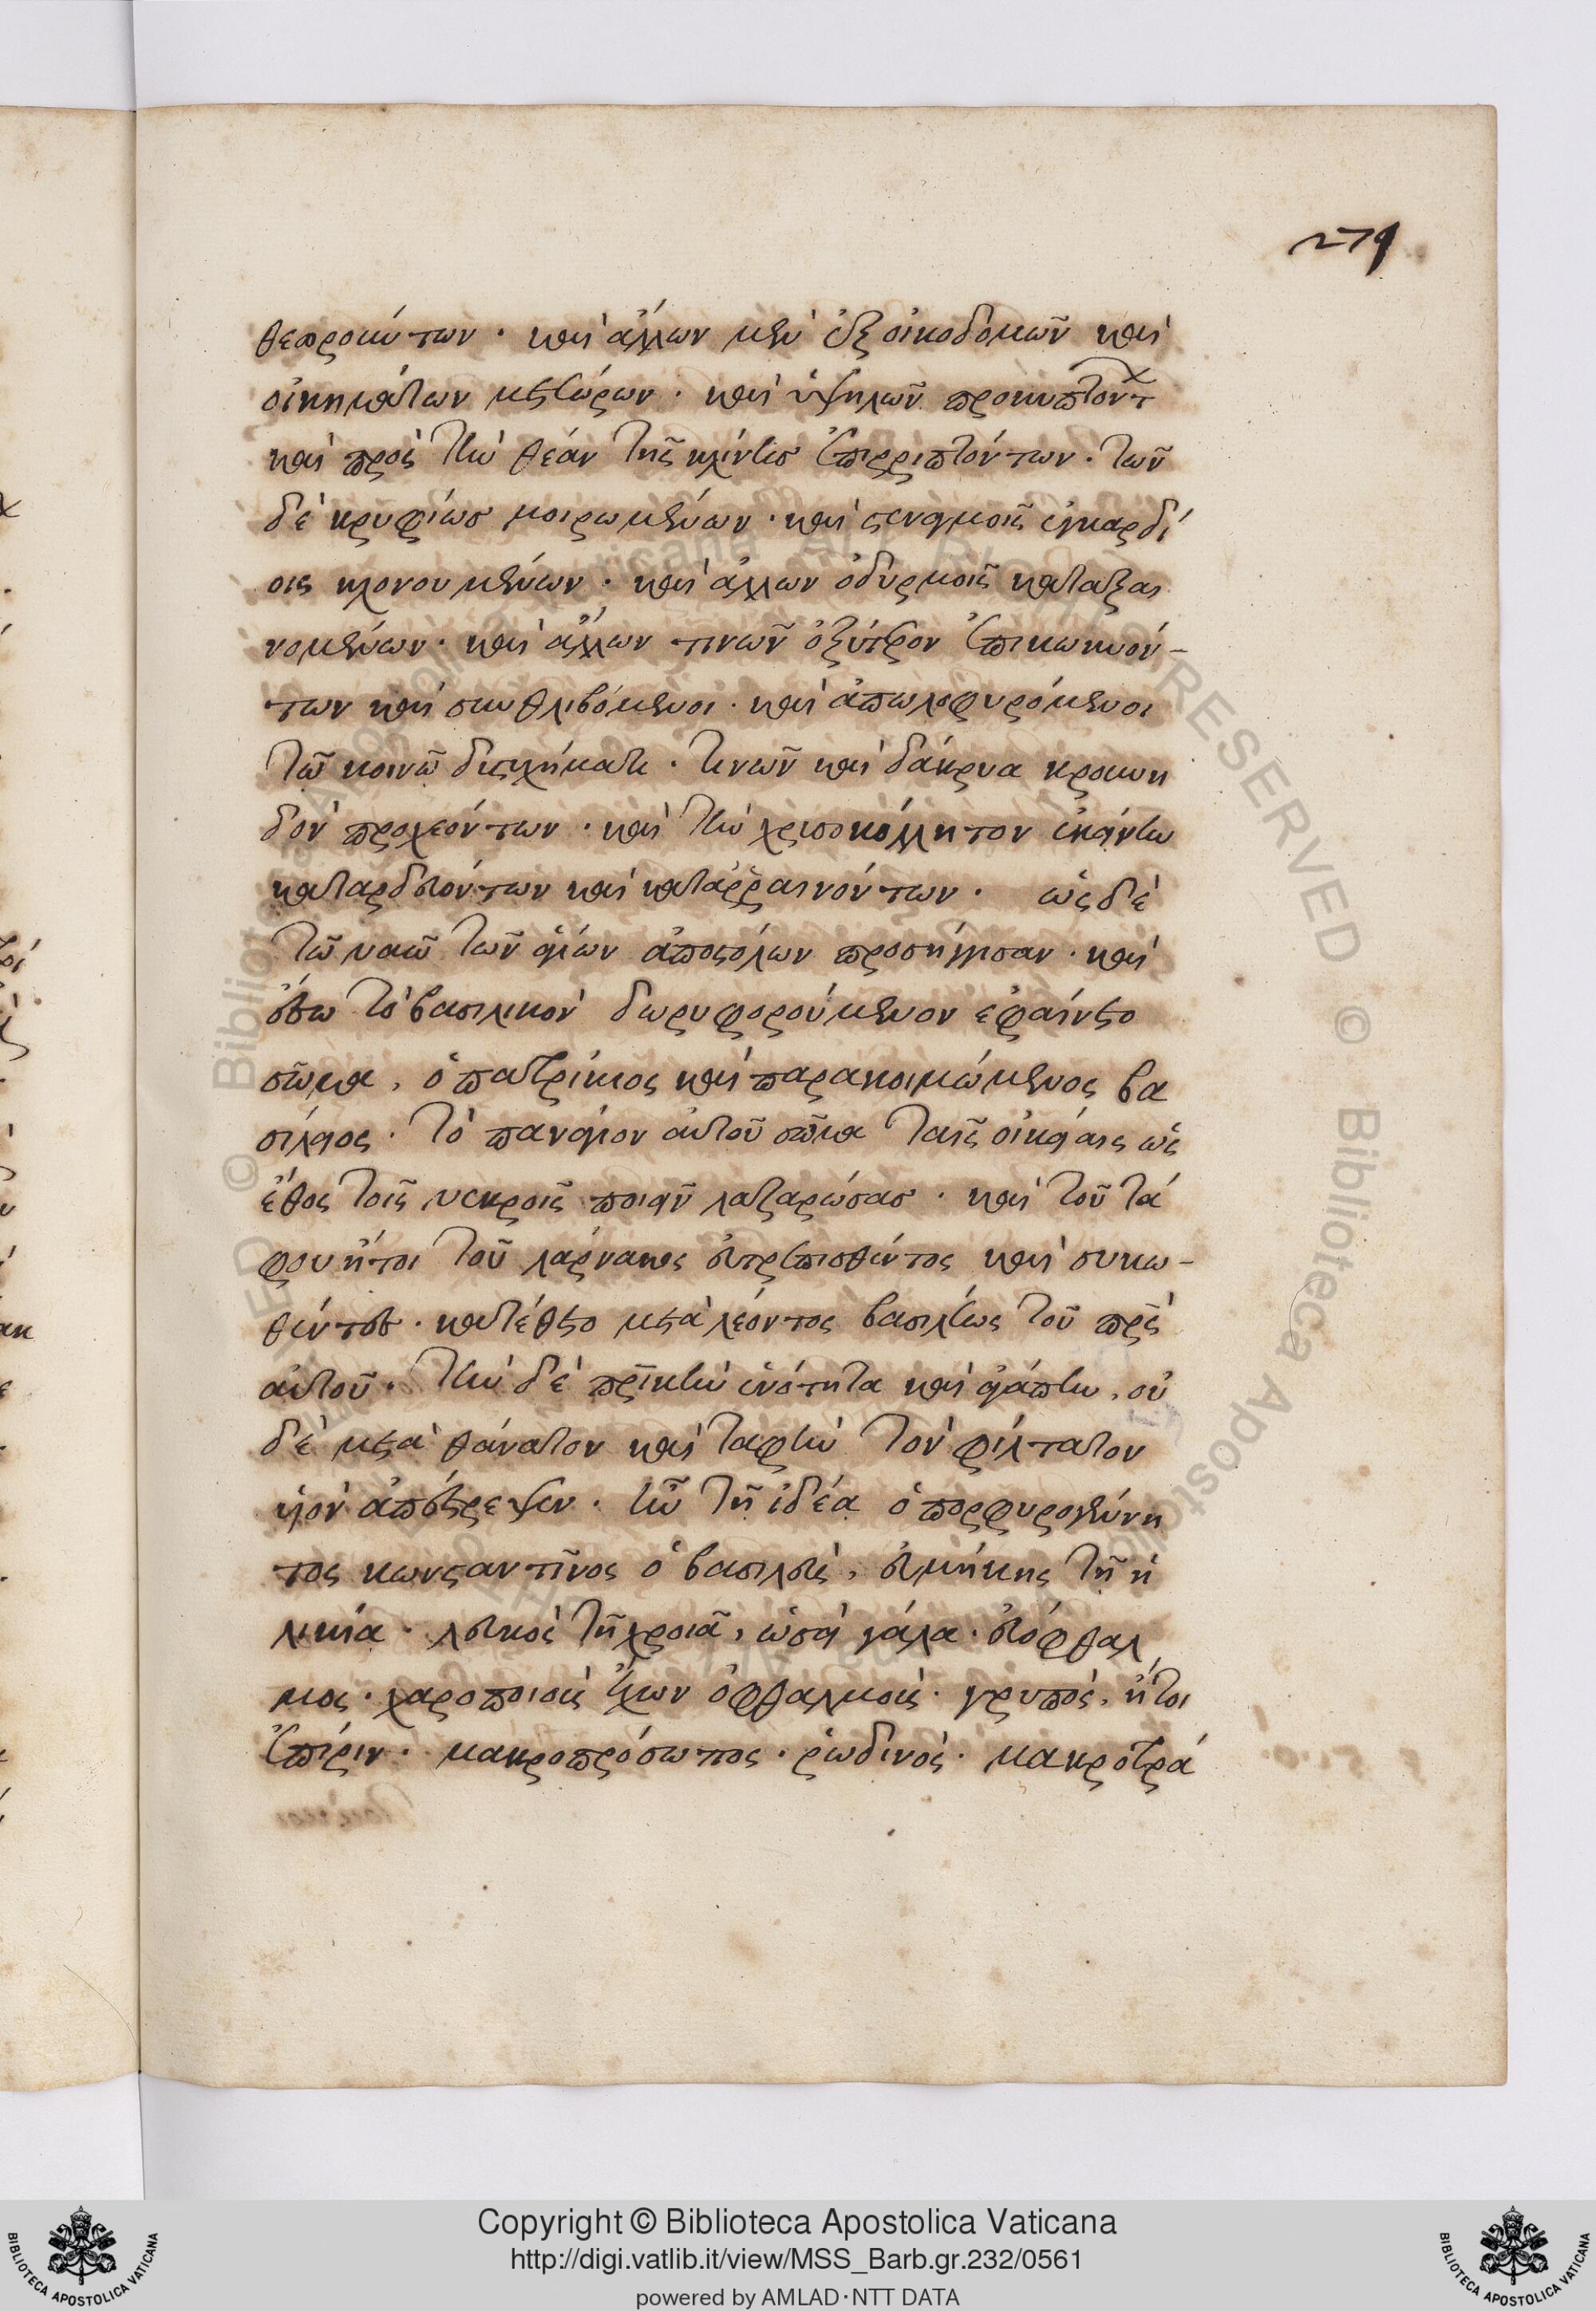 279
θεωροκύτων · καὶ ἄλλων μὲν ἐξ οἰκοδομῶν καὶ
οἰκημάτων μετεώρων · καὶ ὑψηλῶν προκυπτόντ
καὶ πρὸς τὴν θέαν τῆς κλίνης ἐπιρριπτόντων · τῶν
δὲ κρυφίως μοιρωμένων · καὶ στεναγμοῖς ἐγκαρδί
οις κλονουμένων · καὶ ἄλλων ὀδυρμοῖς καταξαι
νομένων · καὶ ἄλλων τινῶν ὀξύτερον ἐπικωκυόν-
των καὶ συνθλιβόμενοι · καὶ ἀπωλοφυρόμενοι
τῶ κοινῶ δυστυχήματι · τινῶν καὶ δάκρυα κρουνη
δὸν προχεόντων · καὶ τὴν χρισοκόλλητον ἐκείνην
καταρδευόντων καὶ καταῤῥαινόντων · ὡς δὲ
τῶ ναῶ τῶν ἁγίων ἀποστόλων προσήγγισαν · καὶ
ἔσω τὸ βασιλικὸν δωρυφορούμενον ἐφαίνετο
σῶμα, ὁ πατρίκιος καὶ παρακοιμώμενος βα
σίλειος · τὸ πανάγιον αὐτοῦ σῶμα ταῖς οἰκείαις ὡς
ἔθος τοῖς νεκροῖς ποιεῖν λαζαρώσας · καὶ τοῦ τά
φου ἤτοι τοῦ λάρνακος εὐτρεπισθέντος καὶ συκω-
θέντος · κατέθετο μετὰ λέοντος βασιλέως τοῦ πρς
αὐτοῦ · τὴν δὲ πρικὴν ἑνότητα καὶ ἀγάπην, οὐ
δὲ μετὰ θάνατον καὶ ταφὴν τὸν φίλτατον
υἱὸν ἀπέστρεψεν · ἦν τῆ ἰδέα ὁ πορφυρογέννη
τος κωνσταντῖνος ὁ βασιλεὺς, εὐμήκης τῆ ἡ
λικία · λευκὸς τῆ χροιᾶ, ὡσεὶ γάλα · εὐόφθαλ
μος · χαροποιοὺς ἔχων ὀφθαλμοὺς · γρυπὸς, ἤτοι
ἐπίριν · μακροπρόσωπος · ῥωδινὸς · μακροτρά
Copyright © Biblioteca Apostolica Vaticana
http://digi.vatlib.it/view/MSS_Barb.gr.232/0561
powered by AMLAD·NTT DATA